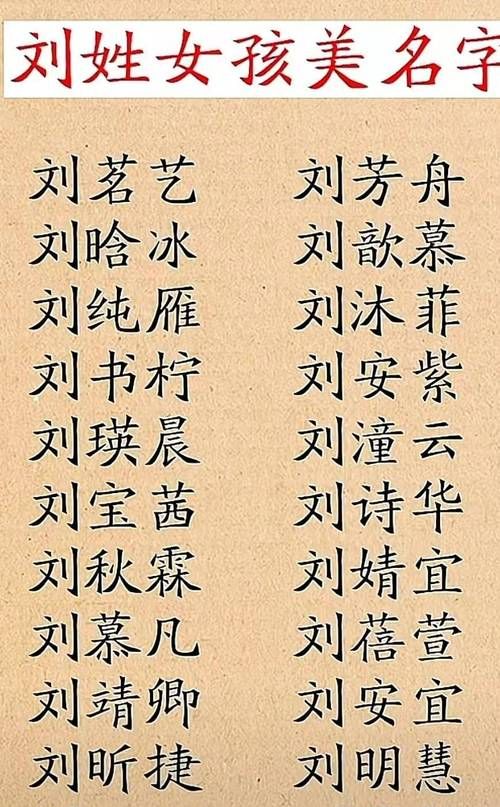 刘姓女孩美名字
刘茗艺 刘芳舟
刘晗冰 刘歆慕
刘纯雁 刘沐菲
刘书柠 刘安紫
刘瑛晨 刘潼云
刘宝茜 刘诗华
刘秋霖 刘婧宜
刘慕凡 刘蓓萱
刘靖卿 刘安宜
刘昕捷 刘明慧